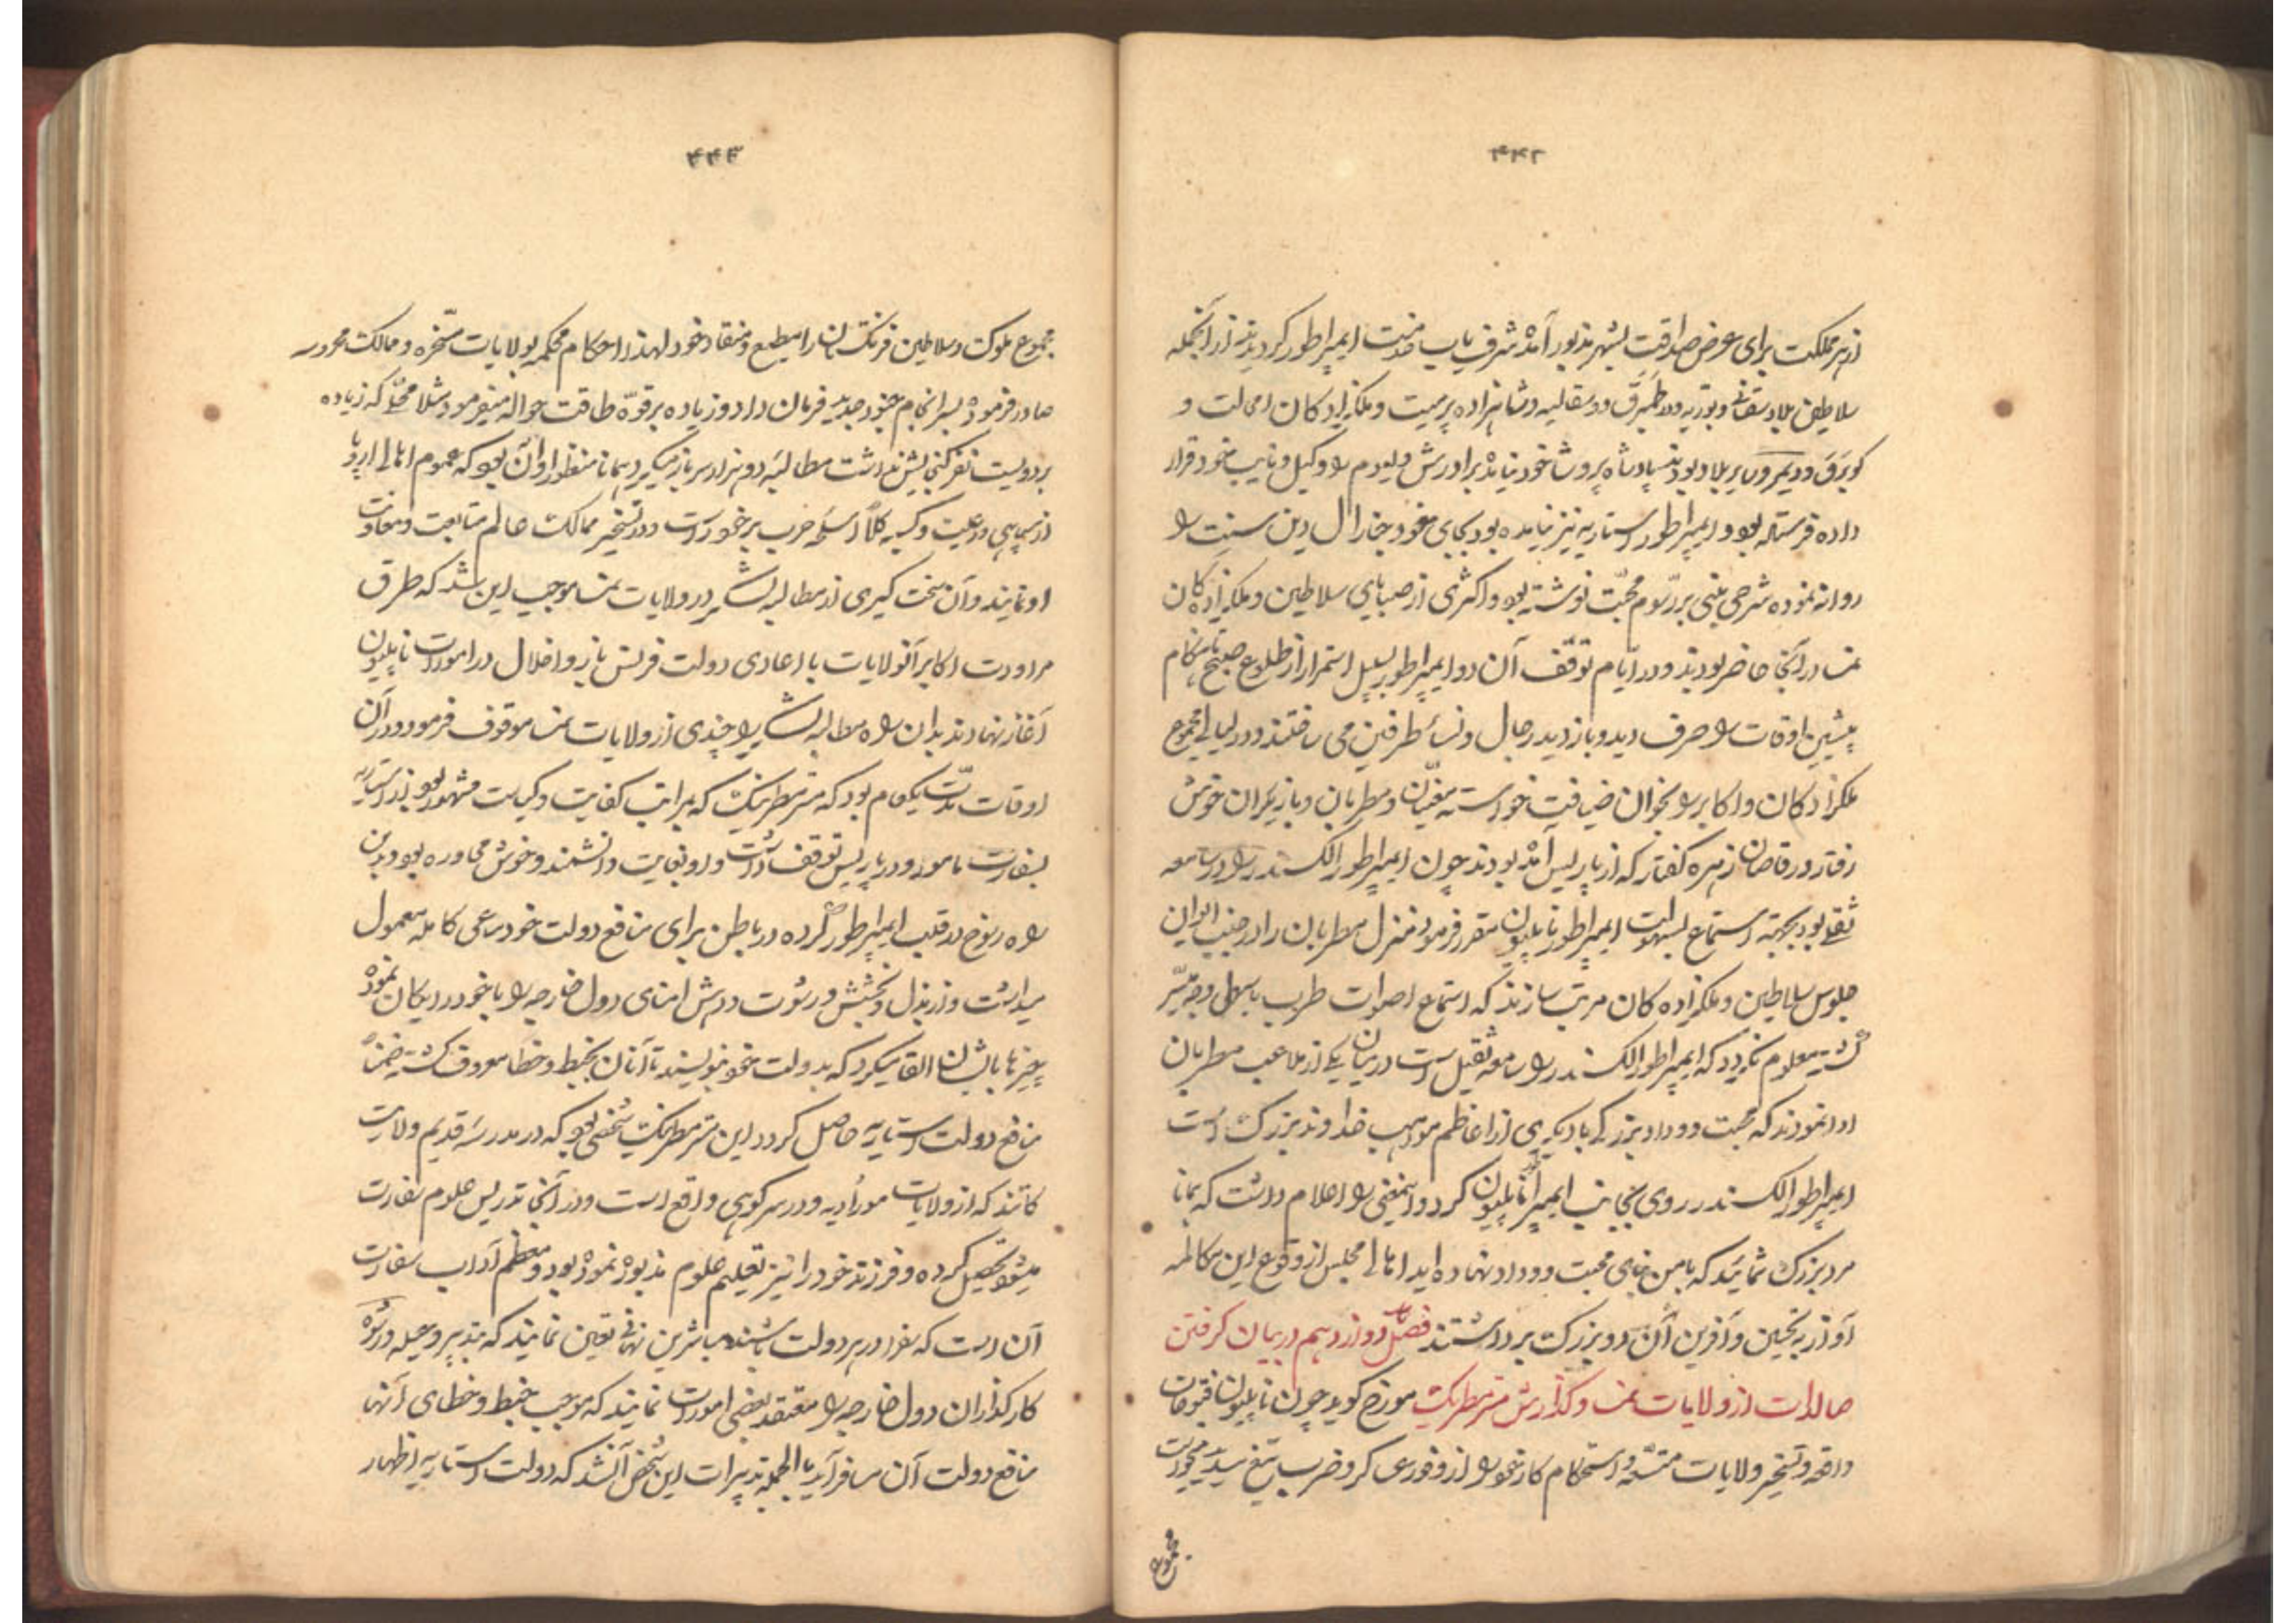 ۴۴۲
از هر مملکت برای عرض صداقت بشهر مذبور آمده شرف یاب خدمت ایمپراطور گردیدند از آنجمله
سلاطین بلاد سقانی و بوتریه و ورطمبرق و وسقالیه و شاهزاده پرمیت و ملکزادکان امالت و
کوبرق و دیمروس بریلاد بودند پادشاه پروشا خود نیامده برادرش ولیوم را وکیل و نایب خود قرار
داده فرستاده بود و ایمپراطور استاریه نیز نیامده بود بجای خود جنارال دین سنت را
روانه نموده شرحی مبنی بر رسوم محبّت نوشته بود و اکثری از صبایای سلاطین و ملکزادکان
نمسه در آنجا حاضر بودند و در ایّام توقّف آن دو ایمپراطور بسبیل استمرار از طلوع صبح تا هنگام
پیشین اوقات را صرف دید و بازدید رجال و نساء طرفین می ساختند و در لیالی مجموع
ملکزادکان و اکابر را بخوان ضیافت خواسته مغنّیان و مطربان و بازیکران خوش
رفتار و رقاصان زهره کفتار که از پاریس آمده بودند چون ایمپراطور الکسندر را در سامعه
ثقلی بود بجهته استماع بسهولت ایمپراطور ناپلیون مقرر فرمود منزل مطربان را در جنب ایوان
جلوس سلاطین و ملکزاده کان مرتب سازند که استماع اصوات طرب باسهل وجه میسّر
کشته معلوم نکردد که ایمپراطور الکسندر را سامعه ثقیل است در میان یکی از ملاعب مطربان
ادا نمودند که محبت و وداد بزرکی با دیکری از اعاظم مواهب خداوند بزرک است
ایمپراطور الکسندر روی بجانب ایمپراطور ناپلیون کرد و اینمعنی را اعلام داشت که همانا
مرد بزرک شمائید که با من بنای محبت و وداد نهاده اید اهالی مجلس از وقوع این مکالمه
آواز به تحسین و آفرین آن دو بزرک برداشتند فصل دوازدهم در بیان کرفتن
صالدات از ولایات نمسه و کذارش متر مطرنیک مورخ کوید چون ناپلیون فتوحات
واقعه و تسخیر ولایات متسّعه و استحکام کار خود را از وفور عسکر و ضرب تیغ میدید میخواست
مجموع
۴۴۳
مجموع ملوک و سلاطین فرنکستان را مطیع و منقاد خود لهذا احکام محکمه بولایات مسخّره و ممالک محروسه
صادر فرموده بسرانجام جنود جدید فرمان داد و زیاده بر قوّه طاقت حواله میفرمود مثلا محلّی که زیاده
بر دویست نفر کنجایش نداشت مطالبه دو هزار سرباز میکرد همانا منظور او آن بود که عموم اهالی اروپا
از سپاهی و رعیت و کسبه کلاً از اسلحه حرب برخوردارست و در تسخیر ممالک عالم متابعت و معاونت
او نمایند و آن سخت کیری از مطالبه لشکر در ولایات نمسه موجب این شد که طرق
مراودت اکابر آنولایات با اعادی دولت فرنس باز و اخلال در امورات ناپلیون
آغاز نهادند بدان واسطه مطالبه لشکر را چندی از ولایات نمسه موقوف فرمود در آن
اوقات مدّت یکعام بود که متر مطرنیک که بمراتب کفایت و کیاست مشهور بود از استاریه
بسفارت مامور و در پاریس توقف داشت و او بغایت دانشمند و خوش محاوره بود بدین
راه رسوخ در قلب ایمپراطور کرده در باطن برای منافع دولت خود سعی کامله معمول
میداشت و از بذل و بخشش و رشوت و دهش امنای دول خارجه را با خود در امکان نموده
چیزها بایشان القا میکرد که بدولت خود بنویسند تا آنان بخبط و خطا معروف کشته ضمناً
منافع دولت استاریه حاصل کردد این متر مطرنیک شخصی بود که در مدرسه قدیم ولایت
کانند که از ولایات مورادیه و در سرکوهی واقع است و در آنجا تدریس علوم سفارت
میشود تحصیل کرده و فرزند خود را نیز تعلیم علوم مذبوره نموده بود و معظم آداب سفارت
آن است که سفرا در هر دولت باشند مباشرین نهانی تعیین نمایند که بتدبیر و حیله و رشوه
کارکذاران دول خارجه را معتقد بعضی امورات نمایند که موجب خبط و خطای آنها
منافع دولت آن سافر آید بالجمله تدبیرات این شخص آن شد که دولت استاریه اظهار